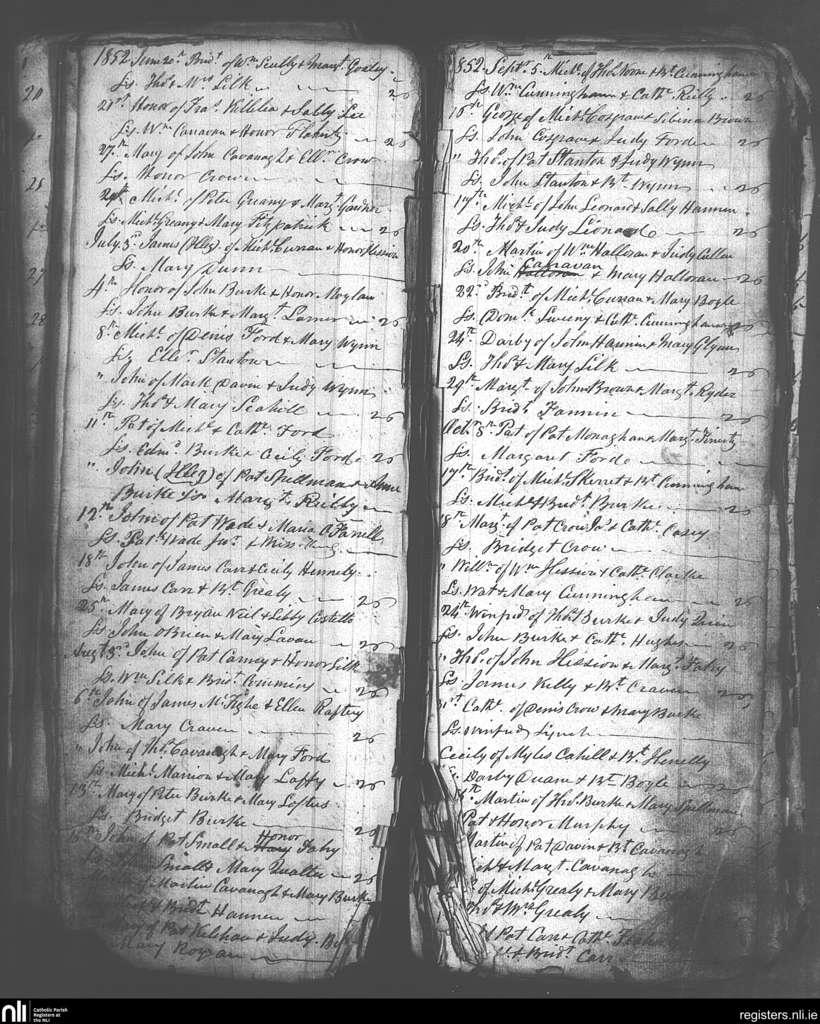 1852 June 20th Bridt of Wm Scully & Margt Gorley
Ss. Thos & Mrs Silk 26
21st Honor of Fras Killilea & Sabby Lee
Ss. Wm Canavan & Honor Flaherty 26
27th Mary of John Cavanagh & Ellen Crow
Ss. Honor Crow
Michl of Peter Greany & Margt Gardner
Ss. Michl Greany & Mary Fitzpatrick 26
July 3d James (Illeg) of Michl Curran & Honor Hession
Ss. Mary Dunn
4th Honor of John Burke & Honor Moylan
Ss. John Burke & Margt 26
8th Michl of Denis Ford & Mary Wynn
Ss. Ellen Stanton
" John of Mark Davin & Judy Wynn
Ss. Thos & Mary Scahill 26
11th Pat of Michl & Cathe Ford
Ss. Edmd Burke & Cecily Forde 26
" John (Illeg) of Pat Spellman & Anne
Burke Ss Margt Reilly
12th John of Pat Wade & Maria O'Farrell
Ss. Patk Wade Junr & Miss
18th John of James Carr & Cecily Hennely
Ss. James Carr & Bt Grealy 26
25th Mary of Bryan Neil & Libby Costello
Ss. John OBrien & Mary Lavan 26
Augt 3d John of Pat Carney & Honor Silk
Ss. Wm Silk & Bridt Commins 26
6th John of James McTighe & Ellen Raftery
Ss. Mary Craven 26
" John of Thos Cavanagh & Mary Ford
Ss. Michl Mannion & Mary Laffy 26
13th Mary of Peter Burke & Mary Loftus
Ss. Bridget Burke 26
John of Pat Small & Honor Fahy
Small & Mary Qualter 26
of Martin Cavanagh & Mary Burke
& Bridt Hannen
Mary of Pat Kelehan & Judy
Mary Rogan
1852 Septr 5th Michl of Thos Noone & Bt Cunningham
Ss. Wm Cunningham & Cathe Reilly 26
10th George of Michl Cosgrave & Selina Brown
Ss. John Cosgrave & Judy Forde 26
" Thos of Pat Stanton & Judy Wynn
Ss. John Stanton & Bt Wynn 26
17th Michl of John Leonard & Sally Hannen
Ss. Thos & Judy Leonard 26
20th Martin of Wm Halloran & Judy Cullen
Ss. John Canavan & Mary Halloran 26
22d Bridt of Michl Curran & Mary Bogle
Ss. Domk Sweeny & Cathe Cunningham
24th Darby of John Hannin & Mary Glynn
Ss. Thos & Mary Silk
29th Margt of John Brown & Margt Ryder
Ss. Bridt Fannin 26
Octr 8th Pat of Pat Monaghan & Margt Finerty
Ss. Margaret Forde
17th Bridt of Michl Skerret & Bt Cunningham
Ss. Michl & Bridt Burke 26
18th Margt of Pat Crow Jr & Cathe Casey
Ss. Bridget Crow
" Willm of Wm Hession & Cathe Clarke
Ss. Wat & Mary Cunningham 26
24th Winfrid of Thos Burke & Judy Quin
Ss. John Burke & Cathe Hughes 26
" Thos of John Hession & Margt Fahy
Ss. James Kelly & Bt Craven 26
31st Cathe of Denis Crow & Mary Burke
Ss. Winfrid Lynch
Cecily of Myles Cahill & Bt Henelly
Darby Duane & Bt Bogle
Martin of Thos Burke & Mary Spellman
Pat & Honor Murphy
Martin of Pat Davin & Bt Cavanagh
& Margt Cavanagh
of Michl Grealy & Mary
Thos & Mrs Grealy
Pat Carr & Cathe
& Bridt Carr
nli
Catholic Parish
Registers at
the NLI
registers.nli.ie